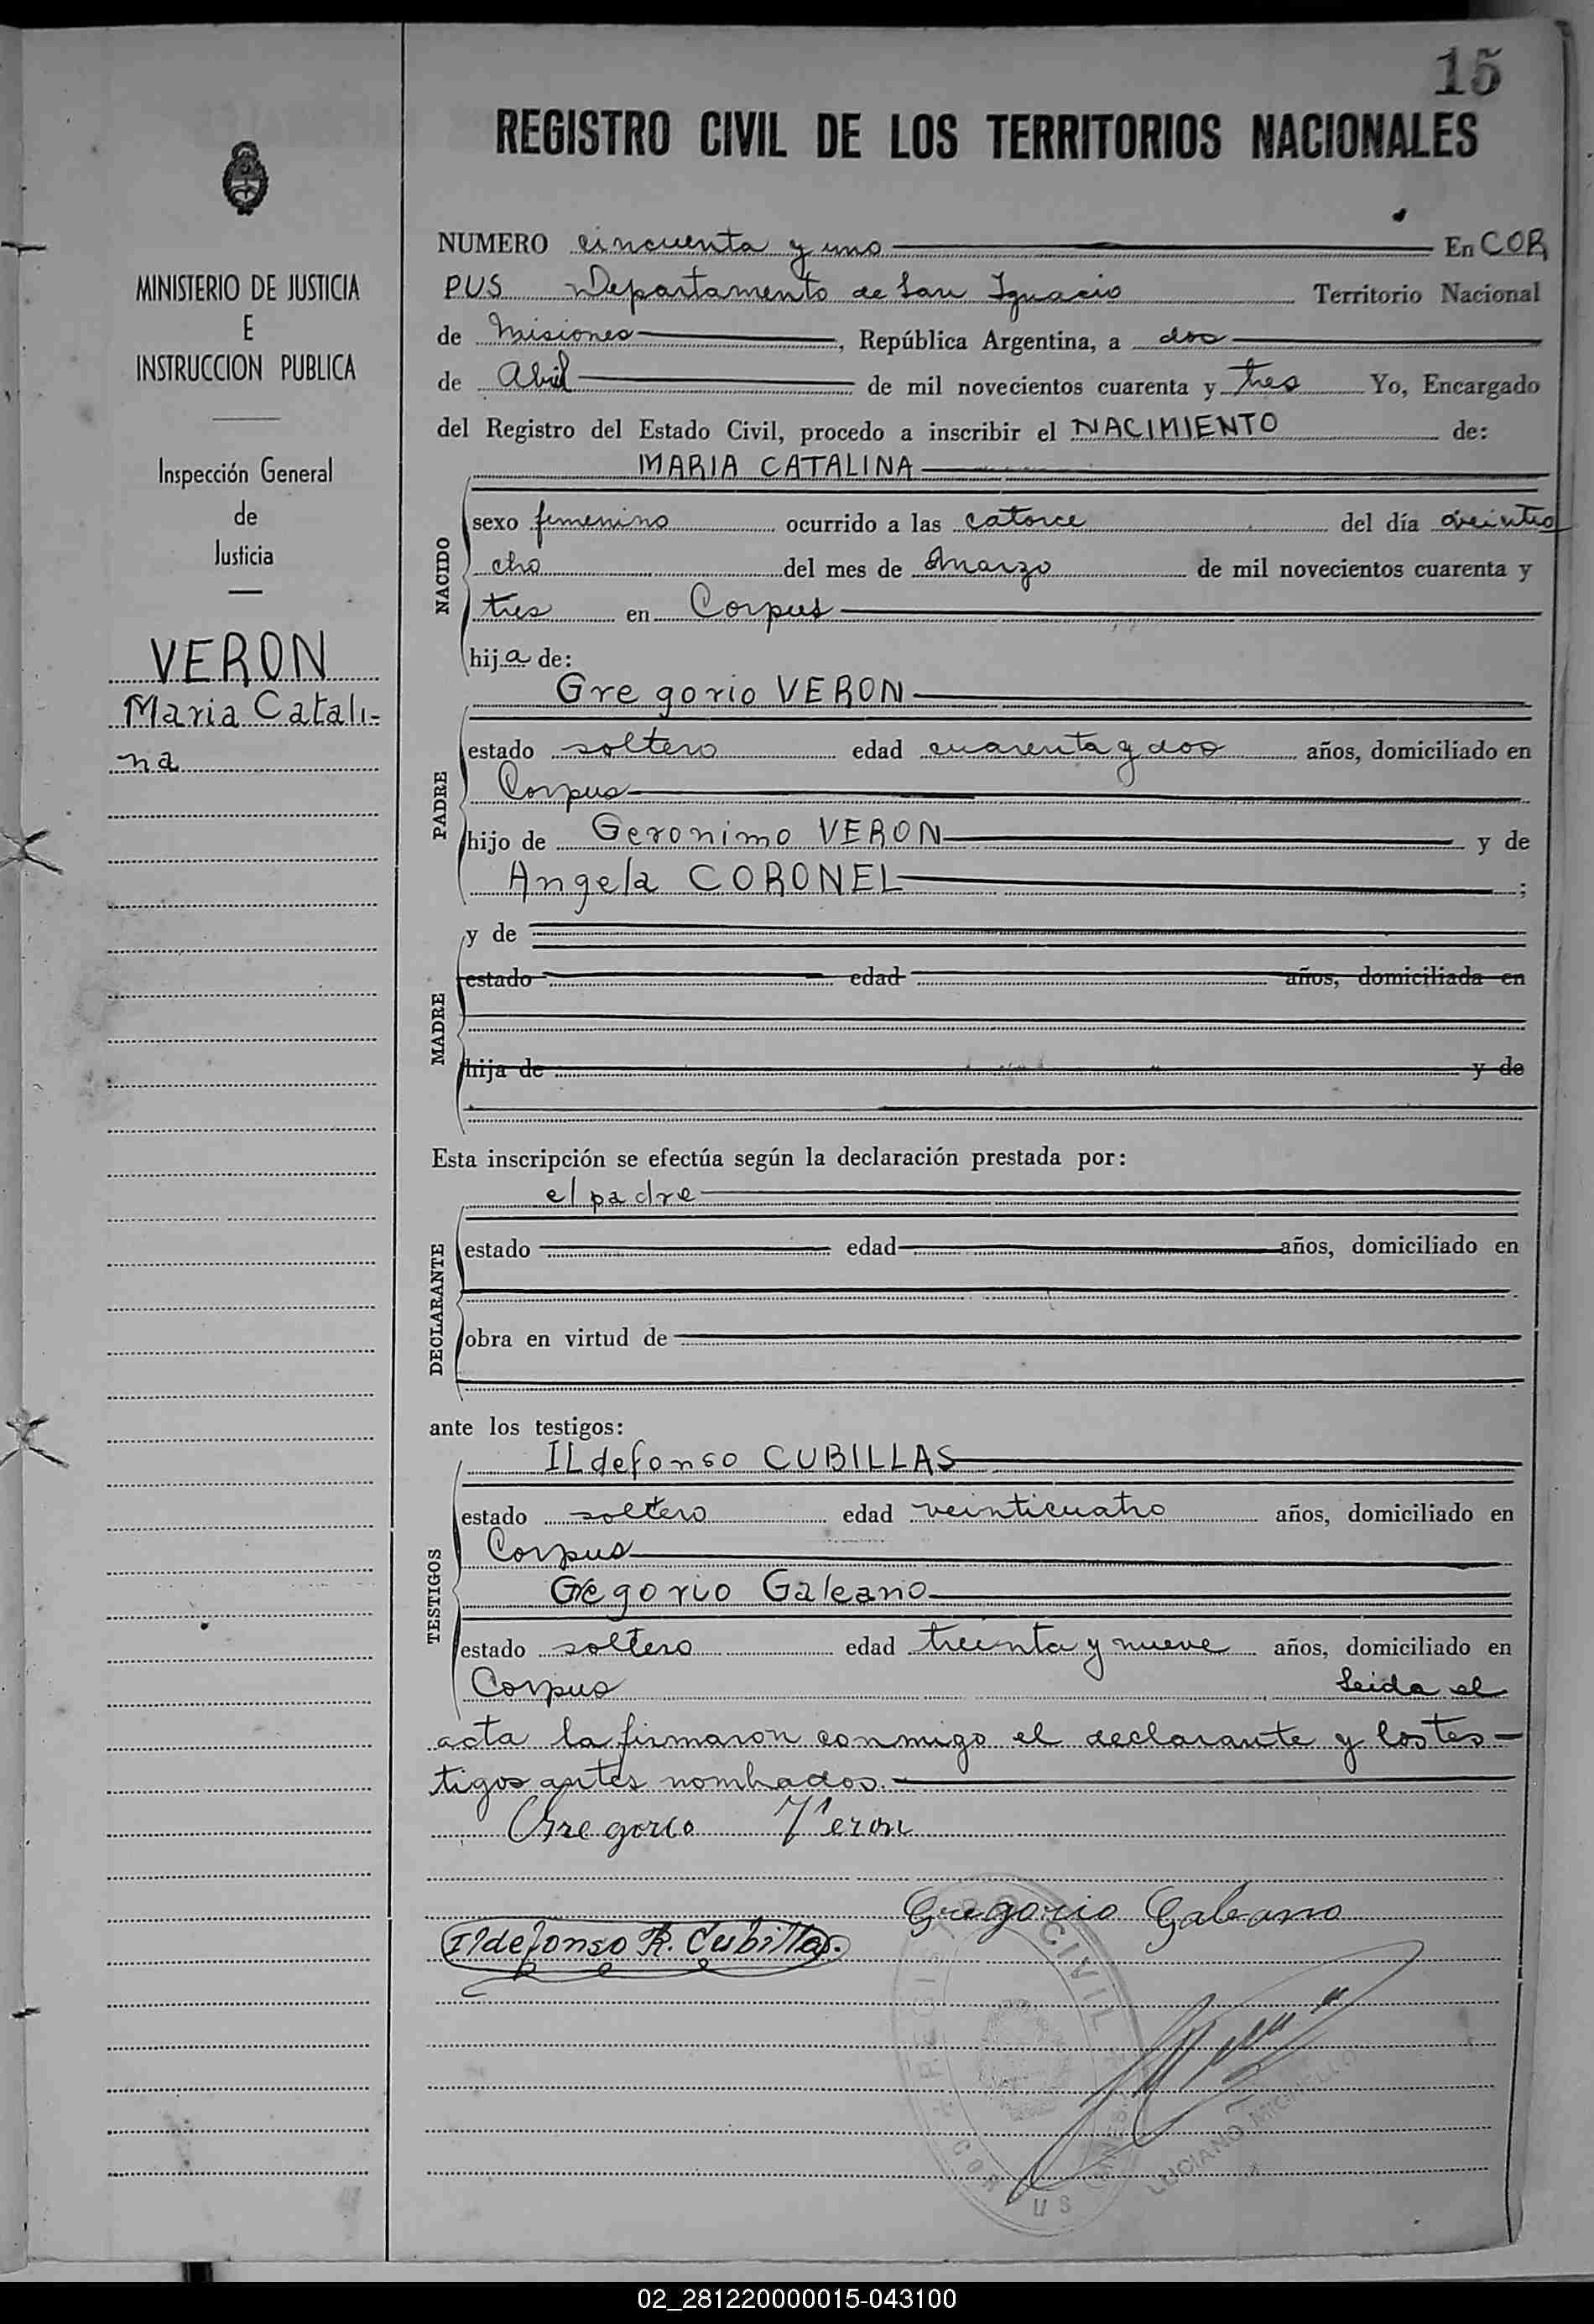 15
REGISTRO CIVIL DE LOS TERRITORIOS NACIONALES
MINISTERIO DE JUSTICIA
E
INSTRUCCION PUBLICA
Inspección General
de
Justicia
VERON
Maria Catali-
na
NUMERO cincuenta y uno En COR
PUS Departamento de San Ignacio Territorio Nacional
de Misiones, República Argentina, a dos
de Abril de mil novecientos cuarenta y tres Yo, Encargado
del Registro del Estado Civil, procedo a inscribir el NACIMIENTO de:
MARIA CATALINA
NACIDO
sexo femenino ocurrido a las catorce del día veintio
cho del mes de Marzo de mil novecientos cuarenta y
tres en Corpus
hija de:
Gregorio VERON
PADRE
estado soltero edad cuarenta y dos años, domiciliado en
Corpus
hijo de Geronimo VERON y de
Angela CORONEL ;
MADRE
y de
estado edad años, domiciliada en
hija de y de
Esta inscripción se efectúa según la declaración prestada por:
el padre
DECLARANTE
estado edad años, domiciliado en
obra en virtud de
ante los testigos:
ILdefonso CUBILLAS
TESTIGOS
estado soltero edad veinticuatro años, domiciliado en
Corpus
Gregorio Galeano
estado soltero edad treinta y nueve años, domiciliado en
Corpus Leida el
acta la firmaron conmigo el declarante y los tes-
tigos antes nombrados.
Gregorio Veron
Gregorio Galeano
Ildefonso R. Cubillas.
CIVIL
LUCIANO MICHELLO
02_281220000015-043100